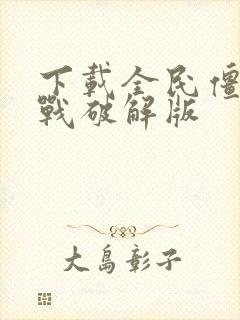 下載全民僵
戰破解版
大島彰子